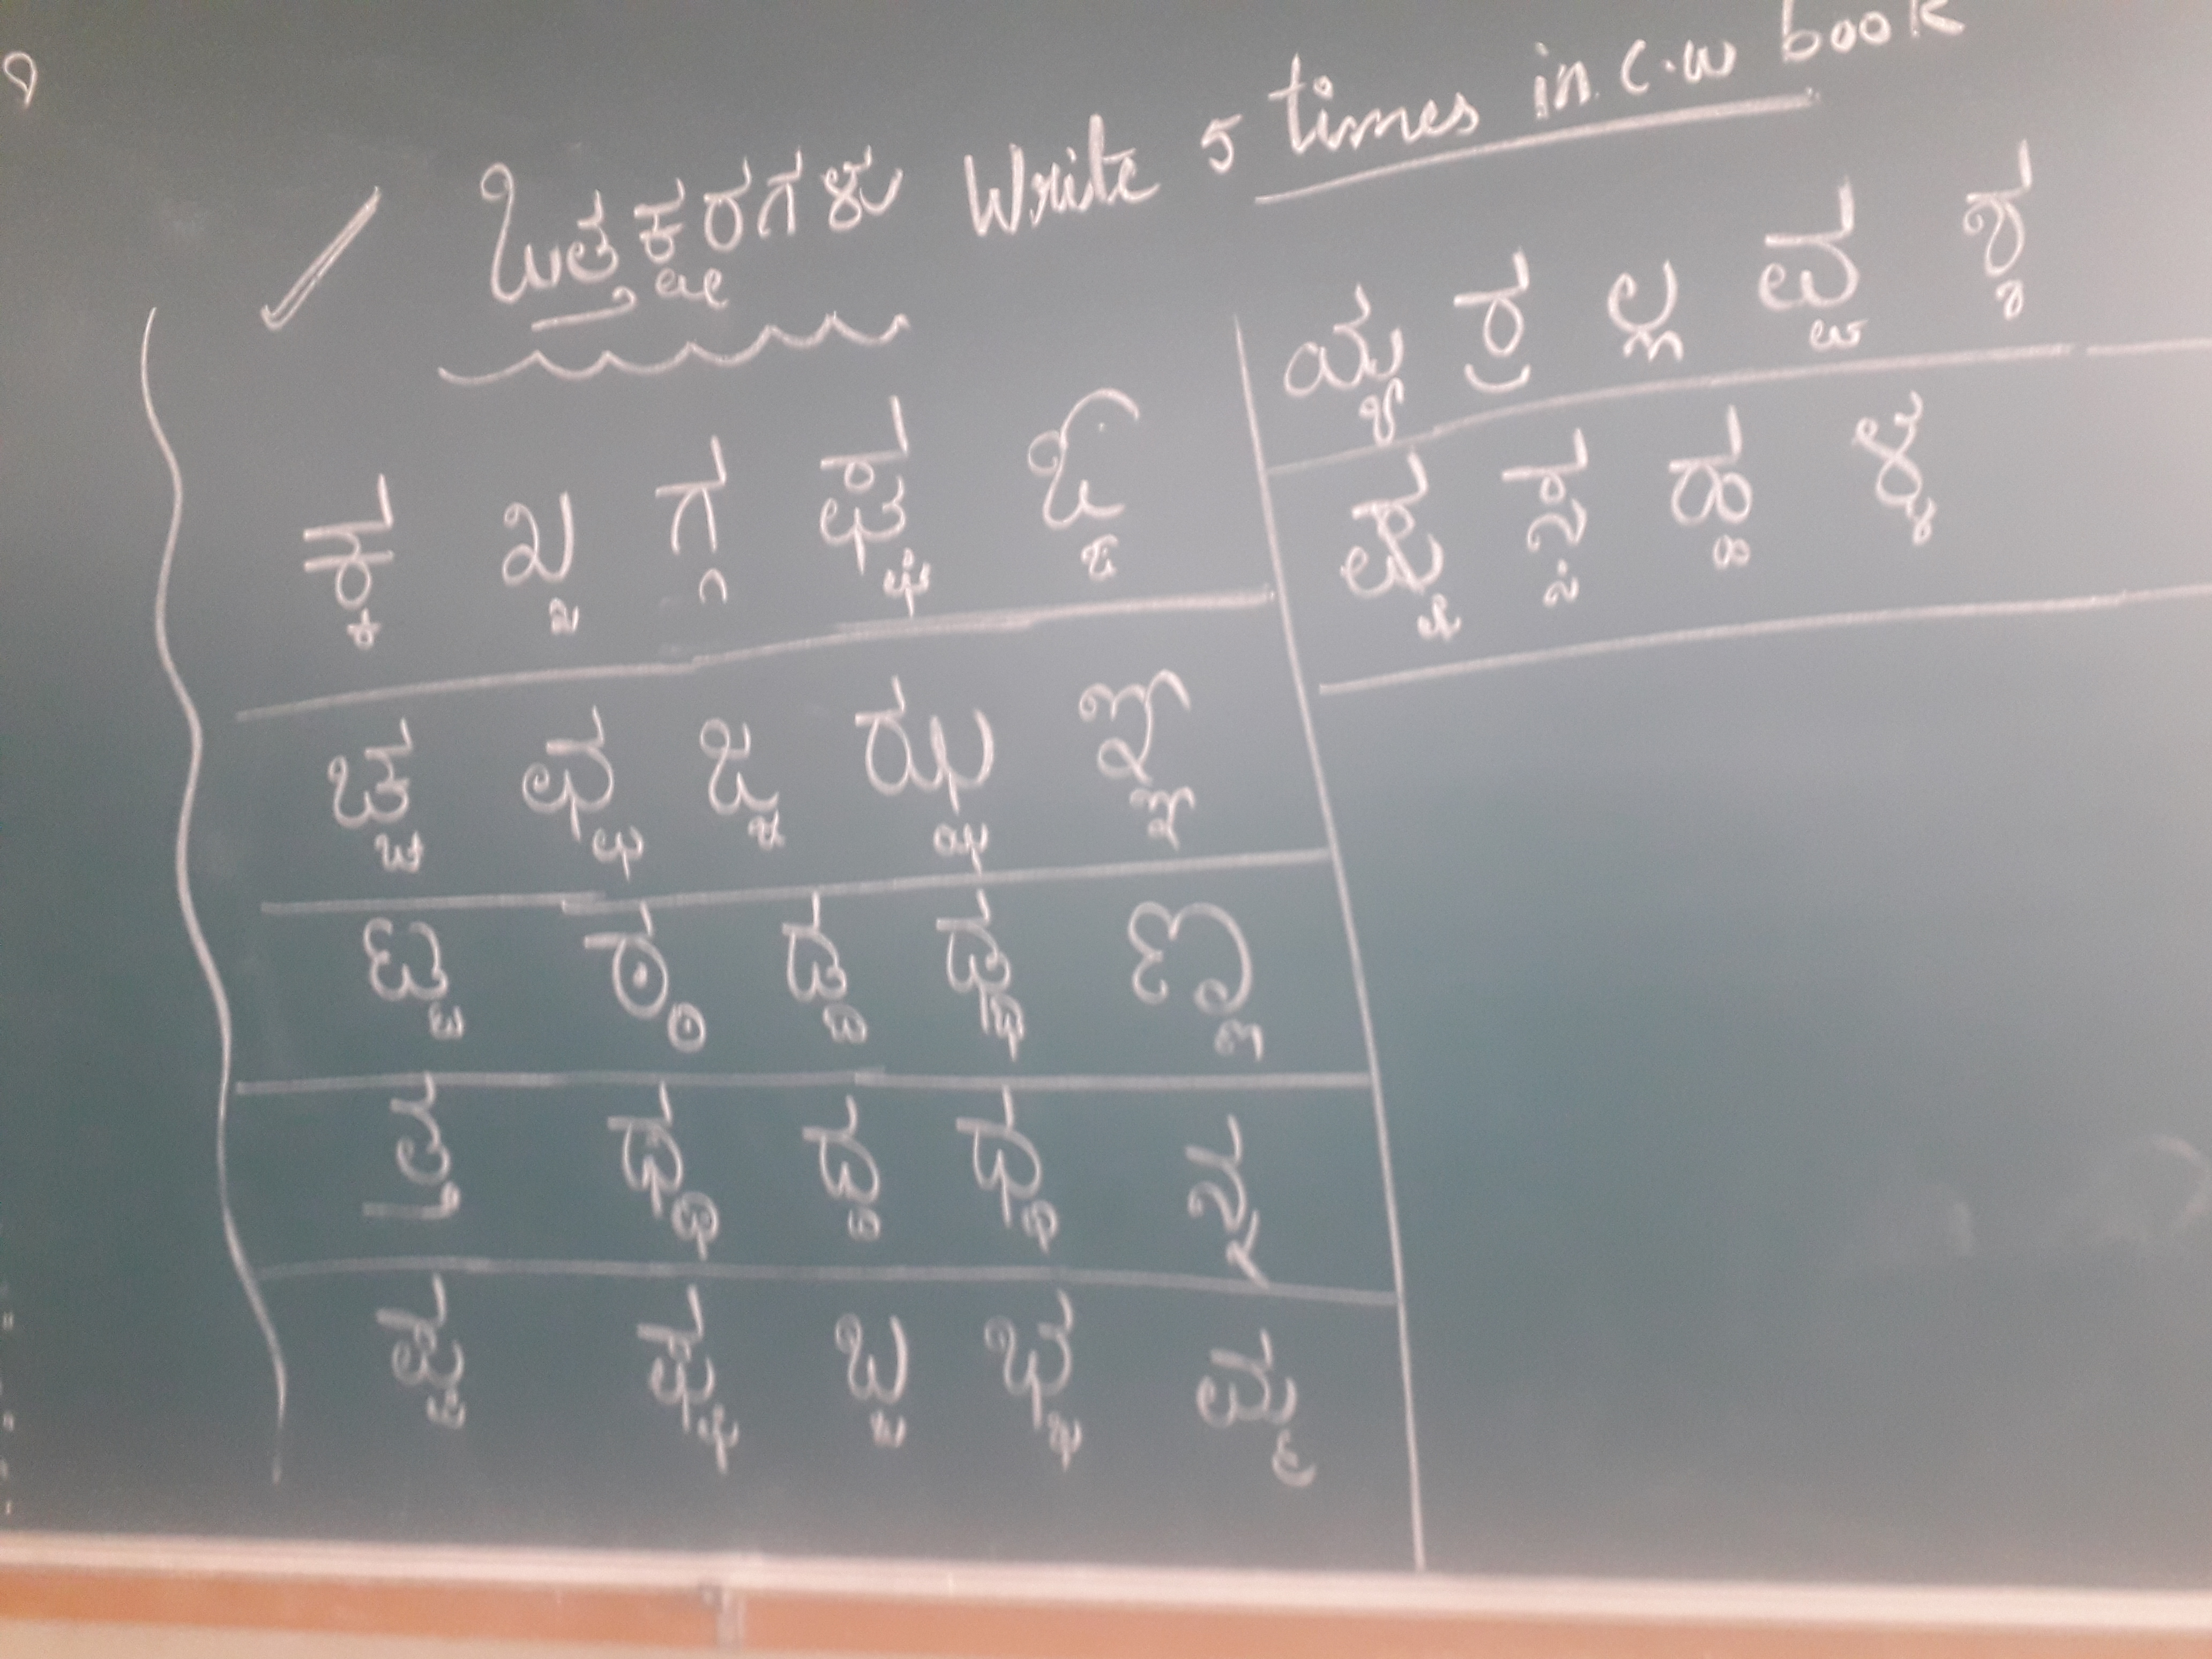 ಒತ್ತಕ್ಷರಗಳು Write 5 times in c.w book
ಕ್ಕ ಖ್ಖ ಗ್ಗ ಘ್ಘ ಙ್ಙ
ಚ್ಚ ಛ್ಛ ಜ್ಜ ಝ್ಝ ಞ್ಞ
ಟ್ಟ ಠ್ಠ ಡ್ಡ ಢ್ಢ ಣ್ಣ
ತ್ತ ಥ್ಥ ದ್ದ ಧ್ಧ ನ್ನ
ಪ್ಪ ಫ್ಫ ಬ್ಬ ಭ್ಭ ಮ್ಮ
ಯ್ಯ ರ್ರ ಲ್ಲ ವ್ವ ಶ್ಶ
ಷ್ಷ ಸ್ಸ ಹ್ಹ ಳ್ಳ